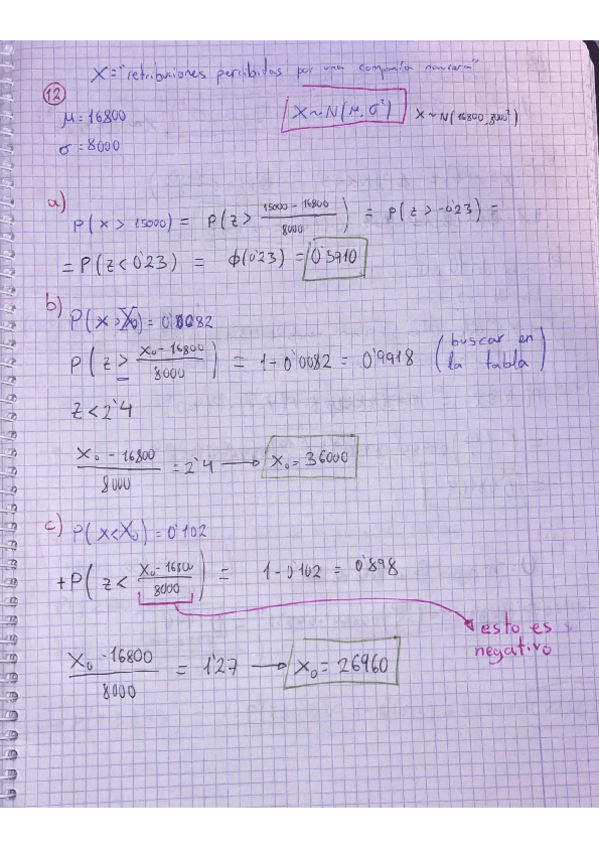 X="retribuciones percibidas por una compañía naviera"
12
μ=16800
σ=8000
X~N(μ,σ²)
X~N(16800,8000²)
a)
P(x>15000) = P(z> 15000-16800 / 8000) = P(z>-0'23) =
= P(z<0'23) = ϕ(0'23) = 0'5910
b)
P(x>X₀)=0'0082
P(z> X₀-16800 / 8000) = 1-0'0082 = 0'9918 (buscar en la tabla)
z<2'4
X₀-16800 / 8000 = 2'4 → X₀=36000
c)
P(x<X₀)=0'102
+P(z< X₀-16800 / 8000) = 1-0'102 = 0'898
esto es
negativo
X₀-16800 / 8000 = 1'27 → X₀=26960